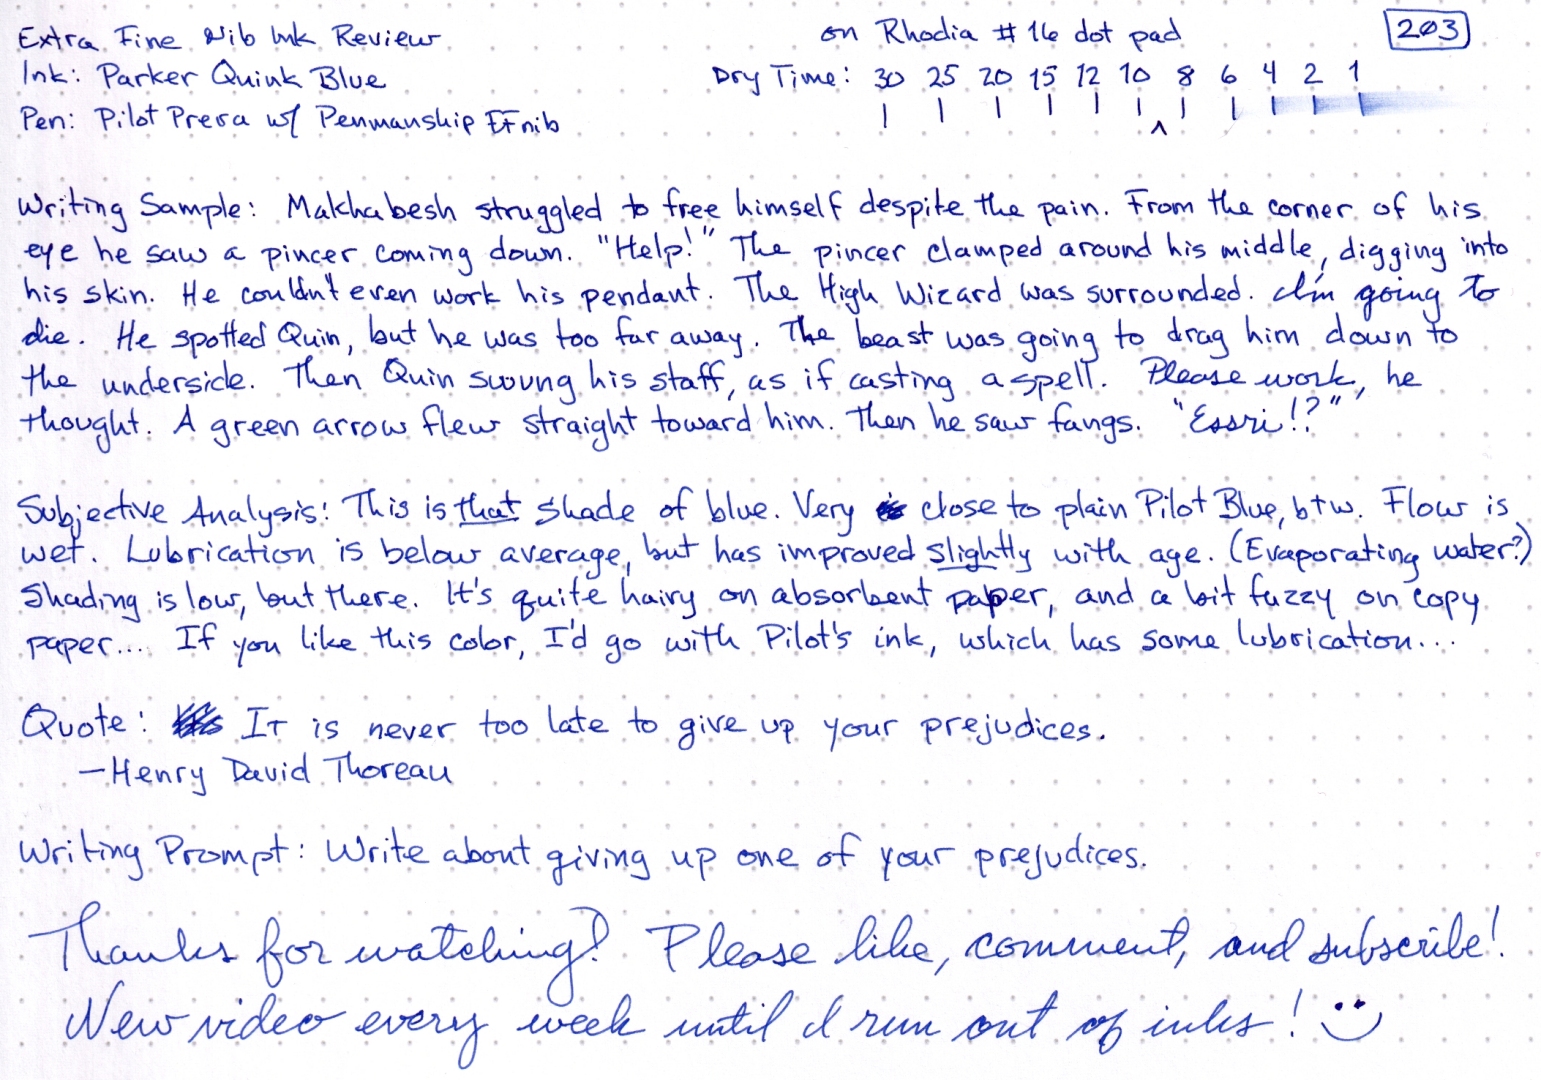 Extra Fine Nib Ink Review
on Rhodia #16 dot pad
203
Ink: Parker Quink Blue
Dry Time: 30 25 20 15 12 10 8 6 4 2 1
Pen: Pilot Prera w/ Penmanship EF nib
^
Writing Sample: Makhabesh struggled to free himself despite the pain. From the corner of his
eye he saw a pincer coming down. "Help!" The pincer clamped around his middle, digging into
his skin. He couldn't even work his pendant. The High Wizard was surrounded. I'm going to
die. He spotted Quin, but he was too far away. The beast was going to drag him down to
the underside. Then Quin swung his staff, as if casting a spell. Please work, he
thought. A green arrow flew straight toward him. Then he saw fangs. "Essri!?"
Subjective Analysis: This is that shade of blue. Very close to plain Pilot Blue, btw. Flow is
wet. Lubrication is below average, but has improved slightly with age. (Evaporating water?)
Shading is low, but there. It's quite hairy on absorbent paper, and a bit fuzzy on copy
paper... If you like this color, I'd go with Pilot's ink, which has some lubrication...
Quote: It is never too late to give up your prejudices.
—Henry David Thoreau
Writing Prompt: Write about giving up one of your prejudices.
Thanks for watching! Please like, comment, and subscribe!
New video every week until I run out of inks!